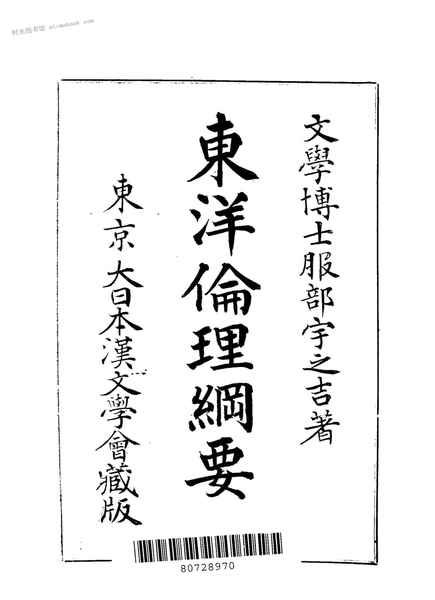 文學博士服部宇之吉著
東洋倫理綱要
東京大日本漢文學會藏版
80728970